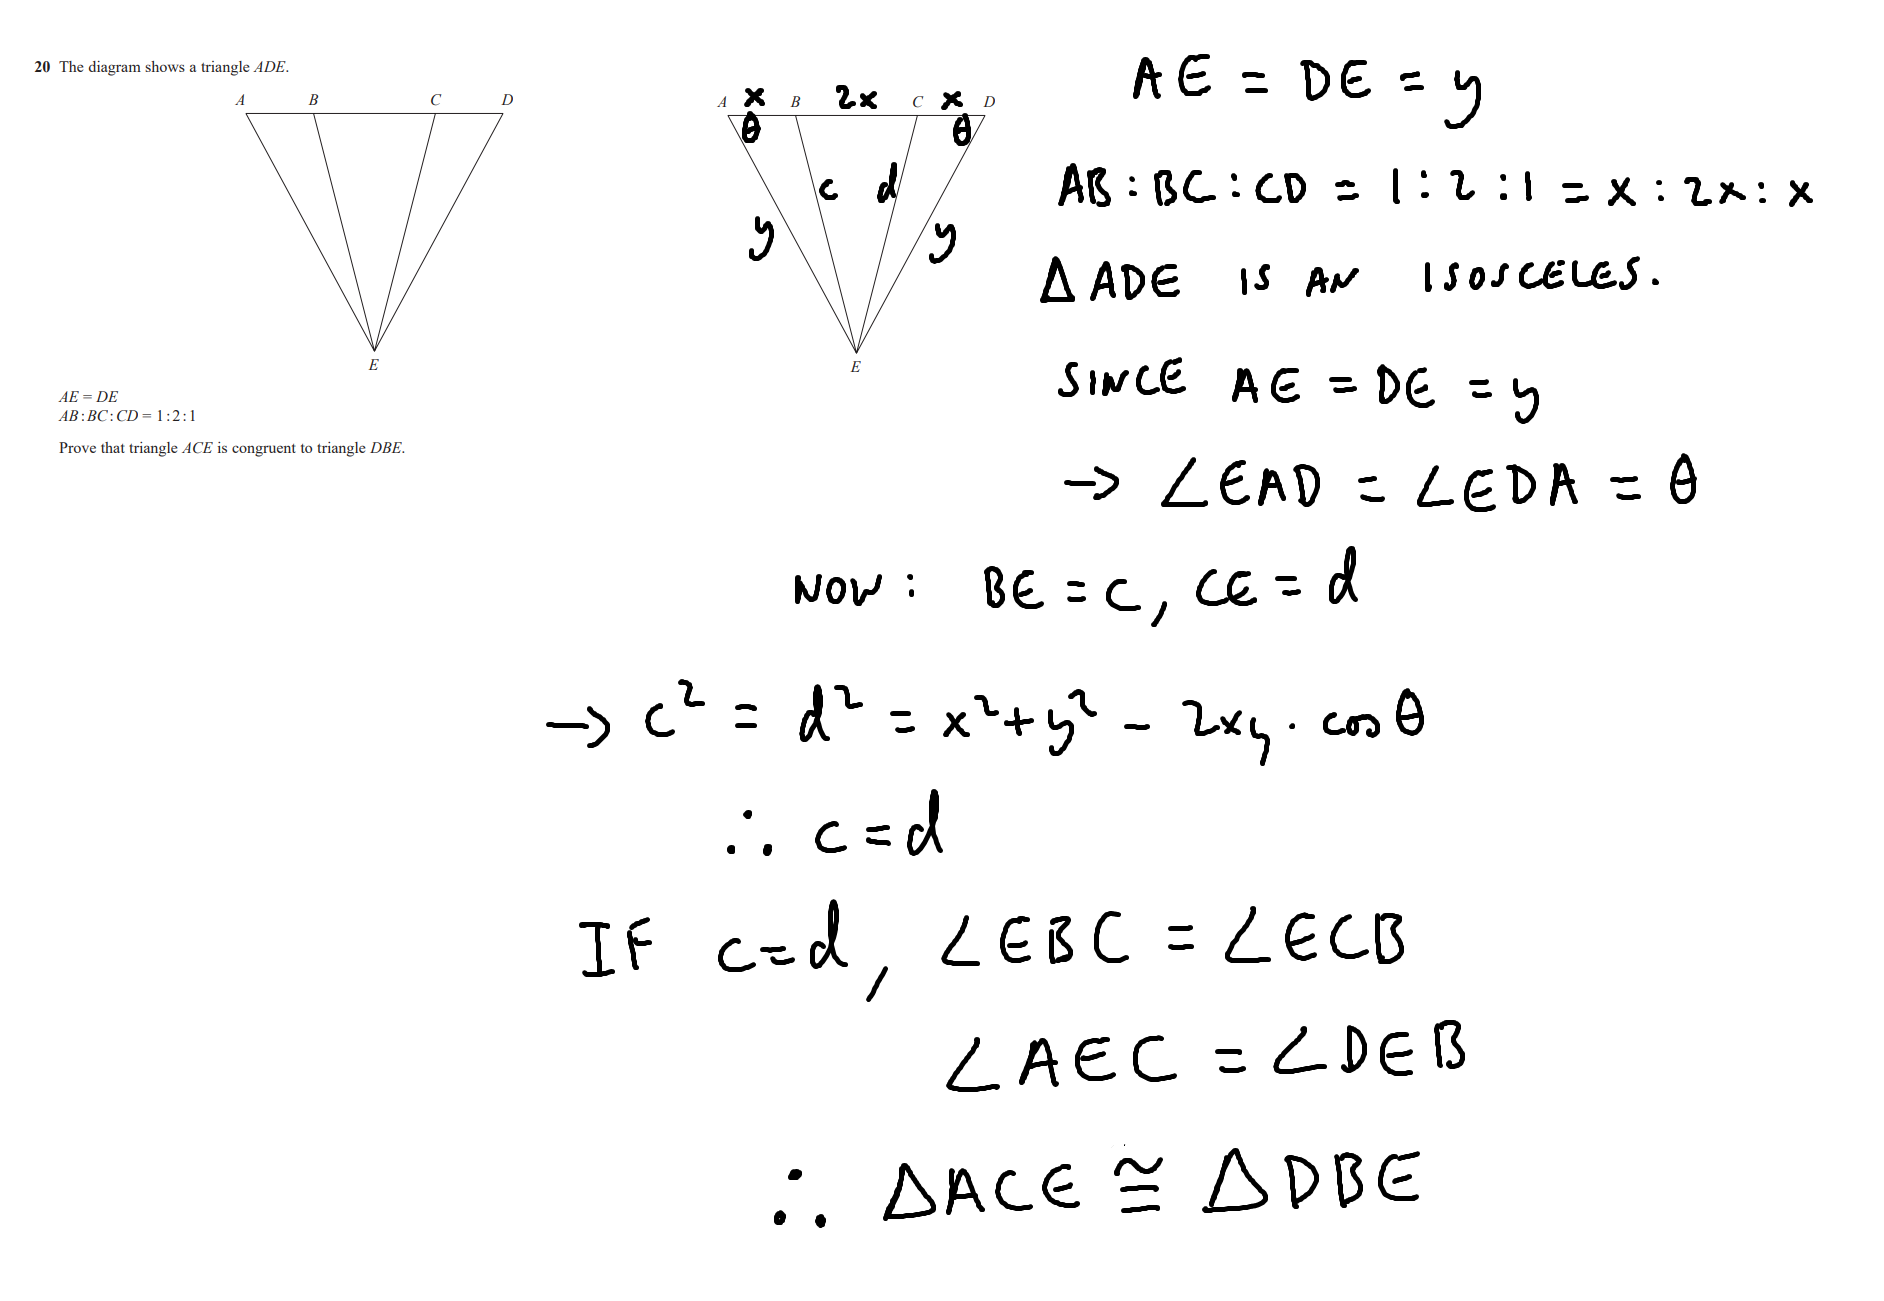 20 The diagram shows a triangle ADE.
A B C D
E
AE = DE
AB : BC : CD = 1 : 2 : 1
Prove that triangle ACE is congruent to triangle DBE.
A x B 2x C x D
θ θ
c d
y y
E
AE = DE = y
AB : BC : CD = 1 : 2 : 1 = x : 2x : x
Δ ADE IS AN ISOSCELES.
SINCE AE = DE = y
→ ∠EAD = ∠EDA = θ
NOW : BE = c, CE = d
→ c² = d² = x² + y² - 2xy · cos θ
∴ c = d
IF c = d, ∠EBC = ∠ECB
∠AEC = ∠DEB
∴ ΔACE ≅ ΔDBE